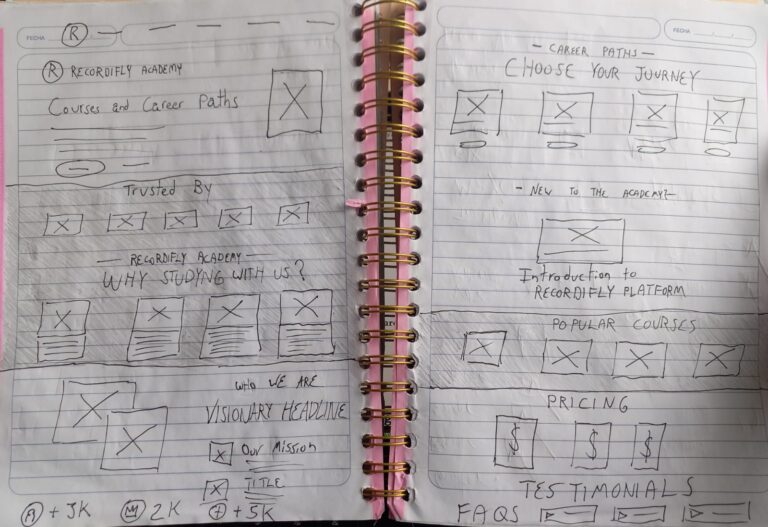 FECHA
R
R RECORDIFLY ACADEMY
Courses and Career Paths
Trusted By
RECORDIFLY ACADEMY
WHY STUDYNG WITH US?
WHO WE ARE
VISIONARY HEADLINE
Our Mission
TITLE
+3K
2K
+5K
FECHA
- CAREER PATHS -
CHOOSE YOUR JOURNEY
- NEW TO THE ACADEMY? -
Introduction to
RECORDIFLY PLATFORM
POPULAR COURSES
PRICING
$ $ $
TESTIMONIALS
FAQS